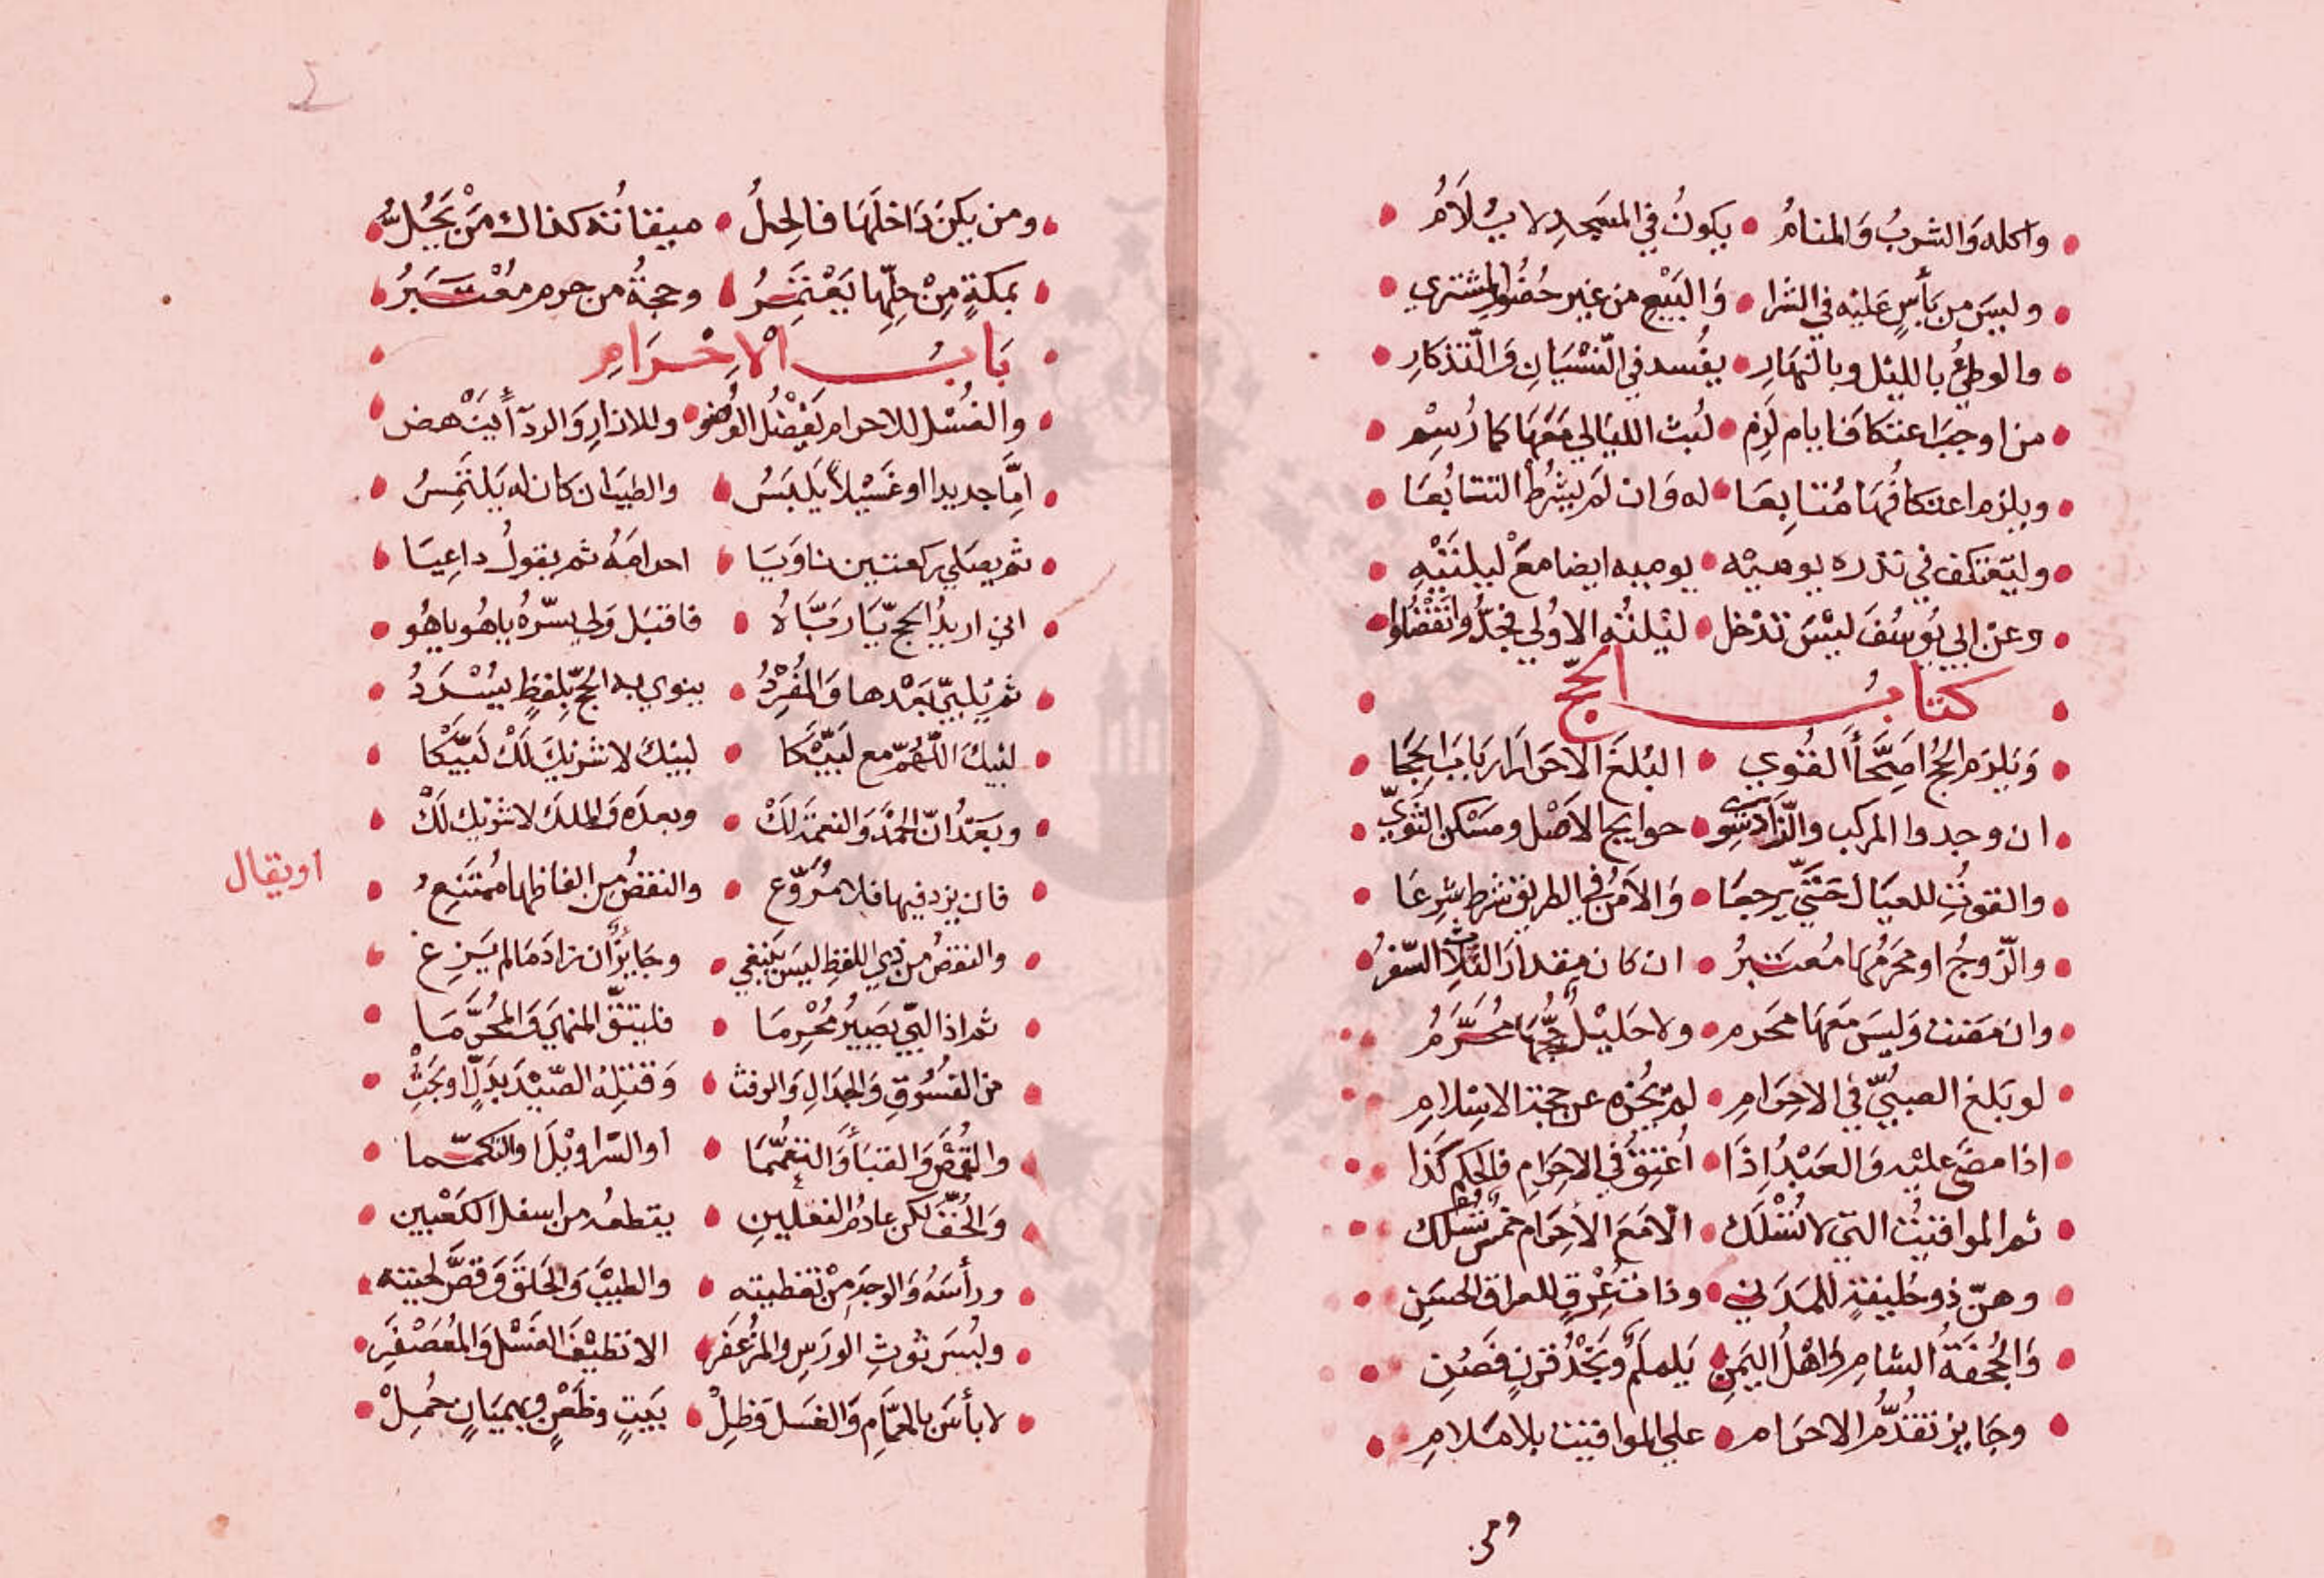 واكله والشربُ وَالمنامُ • يكونُ في المسَجدِ لا يُلَامُ
وليسَ من بَأسٍ عَليْه في الشرا • وَالبَيْعِ من غير حُضُورِ المشتري
والوطيُ بالليْل وبالنهَارِ • يفُسد في النّسْيَانِ وَالتّذكارِ
من اوجبَ اعتكافَ ايام لَزِم • لُبث الليَالي مَعَهَا كما رُسِمْ
ويلزم اعتكافُهَا مُتتابِعَا • له وَان لمَ يشرُط التتابُعَا
وليَعْتكف في نذره يوميْه • يوميه ايضا معْ ليلتَيْهِ
وعن ابي يُوسُفَ ليْسَ تدْخل • ليْلتُه الاوُلي فجدُّوا نَقْضُلوا
كتابُ الحجّ
وَيلزم الحجُ اصِحَّاَ القُوي • البُلغَ الاحَرارَ اربَابَ الحجَا
ان وجدوا المركب والزّادَ سِوي • حوايج الاصْل ومسَكن الثَّوِيّ
والقوتُ للعيَال حَتيّ يرجعَا • وَالاَمنُ في الطريق شرط شرِعَا
والزّوجُ او محَرَمُهَا مُعتَبرُ • ان كان مِقدارَ الثلاثِ السّفرُ
وان مَضت وَليسَ مَعَهَا محَرم • ولا حَليْلٌ حجُّهَا محُرَّمُ
لو بَلغ الصبيُّ في الاحِرَامِ • لمَ يُجْزه عن حجة الاسِلامِ
اذا مضَي عليْه وَالعَبْدُ اِذَا • اُعتِقَ في الاحِرَامِ فالحكم كَذَا
ثم المواقيتُ التي لا تُسْلَك • الّا مَعَ الاحِرَام خمسٌ تسُلك
وهنّ ذو حُليفةٍ للمَدَني • وذاتُ عِرْقٍ للعراق الحسَنِ
وَالجُحْفَةُ الشامِ وَاهْلُ اليَمنِ • يَلملَمٌ ونَجْدُ قرنٍ فَصُنِ
وجَايز تقدُّمُ الاحرَام • علي المواقيت بلا مَلامِ
ومن
ومن يكنَ دَاخلَهَا فالحِلُ • ميقاتُه كذاك مَنْ يَحُلُّ
بمكةٍ مِنْ حِلِّهَا يَعْتمَرُ • وحجةُ من حرم مُعْتَبَرُ
بَابُ الاِحْرَامِ
والغُسْل للاحرام يَفْضُل الوُضو • وللازارِ وَالردآ اَينْهض
امَّا جديدا او غَسَيْلاً يَلبَسُ • والطيبَ ان كان له يَلتَمِسُ
ثم يصلي ركعتين ناويَا • احرامَهُ ثم يقولُ داعِيَا
اني اريدُ الحجّ يَا ربَّاهُ • فاقبَل ولي يسّرهُ ياهُو ياهُو
ثم يُلبيّ بَعْدها وَالمُفردُ • ينوي به الحجّ بِلفظٍ يسُرَدُ
لبيكَ اللّهُمّ مع لَبَيّكَا • لبيكَ لا شريكَ لَكْ لَبَيّكَا
وبَعَدُ انّ الحمْدَ وَالنعمَة لَكْ • وبعده وَالملكَ لا شريك لَكْ
فان يزد فيها فلا مُروِّع • والنقصُ من الفاظها ممُتنِعُ
او يقال
والنقصُ من ذي اللفظِ ليسَ يَنبغي • وجَايزٌ ان زادَ مَا لم يَزِغ
ثم اذا لبيّ يصَيرُ مُحْرِمَا • فليتقّ المنهيَ وَالمحُرَّمَا
من الفسُوقِ وَالجدَالِ وَالرفث • وَقتلِهُ الصّيْدَ بدَلٍّ او بَحَثْ
والقُمُصَ وَالقبَاَ وَالتعمُّمَا • او السّراويْلَ او التكمّما
وَالخُفّ لكن عادمُ النعلينِ • يقطعُه من اسفل الكعْبين
ورأسَهُ وَالوجهَ مِنْ تغطيته • والطيبَ وَالحَلقَ وَقصَّ لحيته
ولبُسَ ثوبِ الورَسِ والمزُعفَر • الا نظيْفَ الغَسْل وَالمُعَصْفَرِ
لا بأسَ بالحمَّامِ وَالغسَل وَظِلْ • ببَيتٍ وظَعْنٍ وبهميَانٍ حُمِلْ